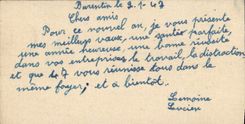 Darentin le 2.1.47
Chers amis
Pour ce nouvel an, je vous présente
mes meilleurs vœux, une santé parfaite,
une année heureuse, une bonne réussite
dans vos entreprises le travail, la distraction
et que 47 vous réunisse tous dans le
même foyer, et à bientôt.
Lemoine
Lucien